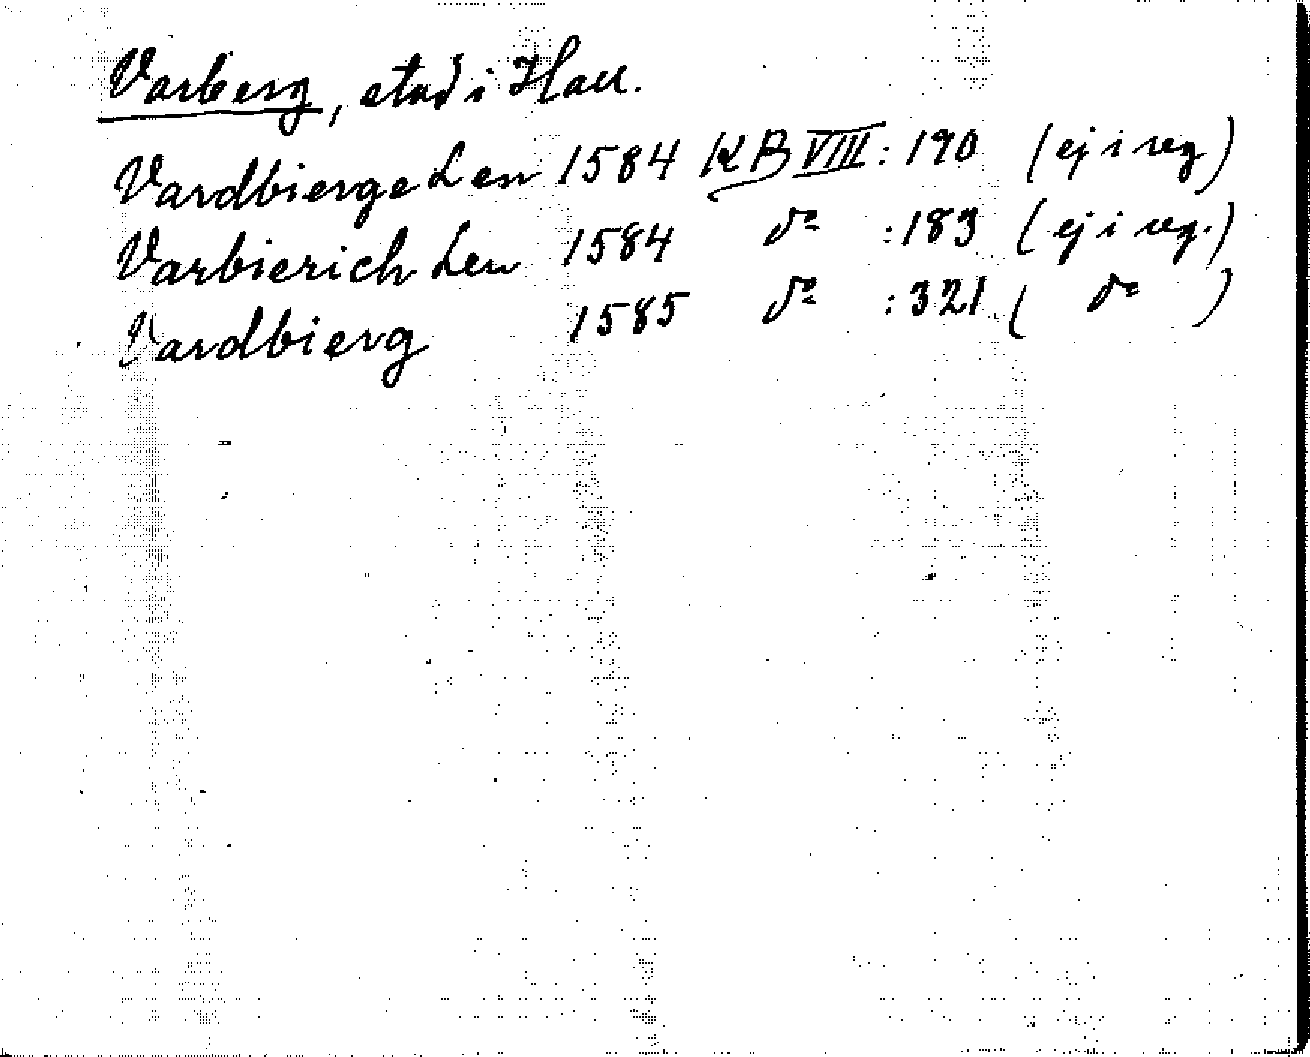 Varberg, stad i Hall.
Vardbierge Len 1584 KB VIII: 190 (ej i reg)
Varbierich Len 1584 do :183 (ej i reg.)
Vardbierg 1585 do :321 ( do )